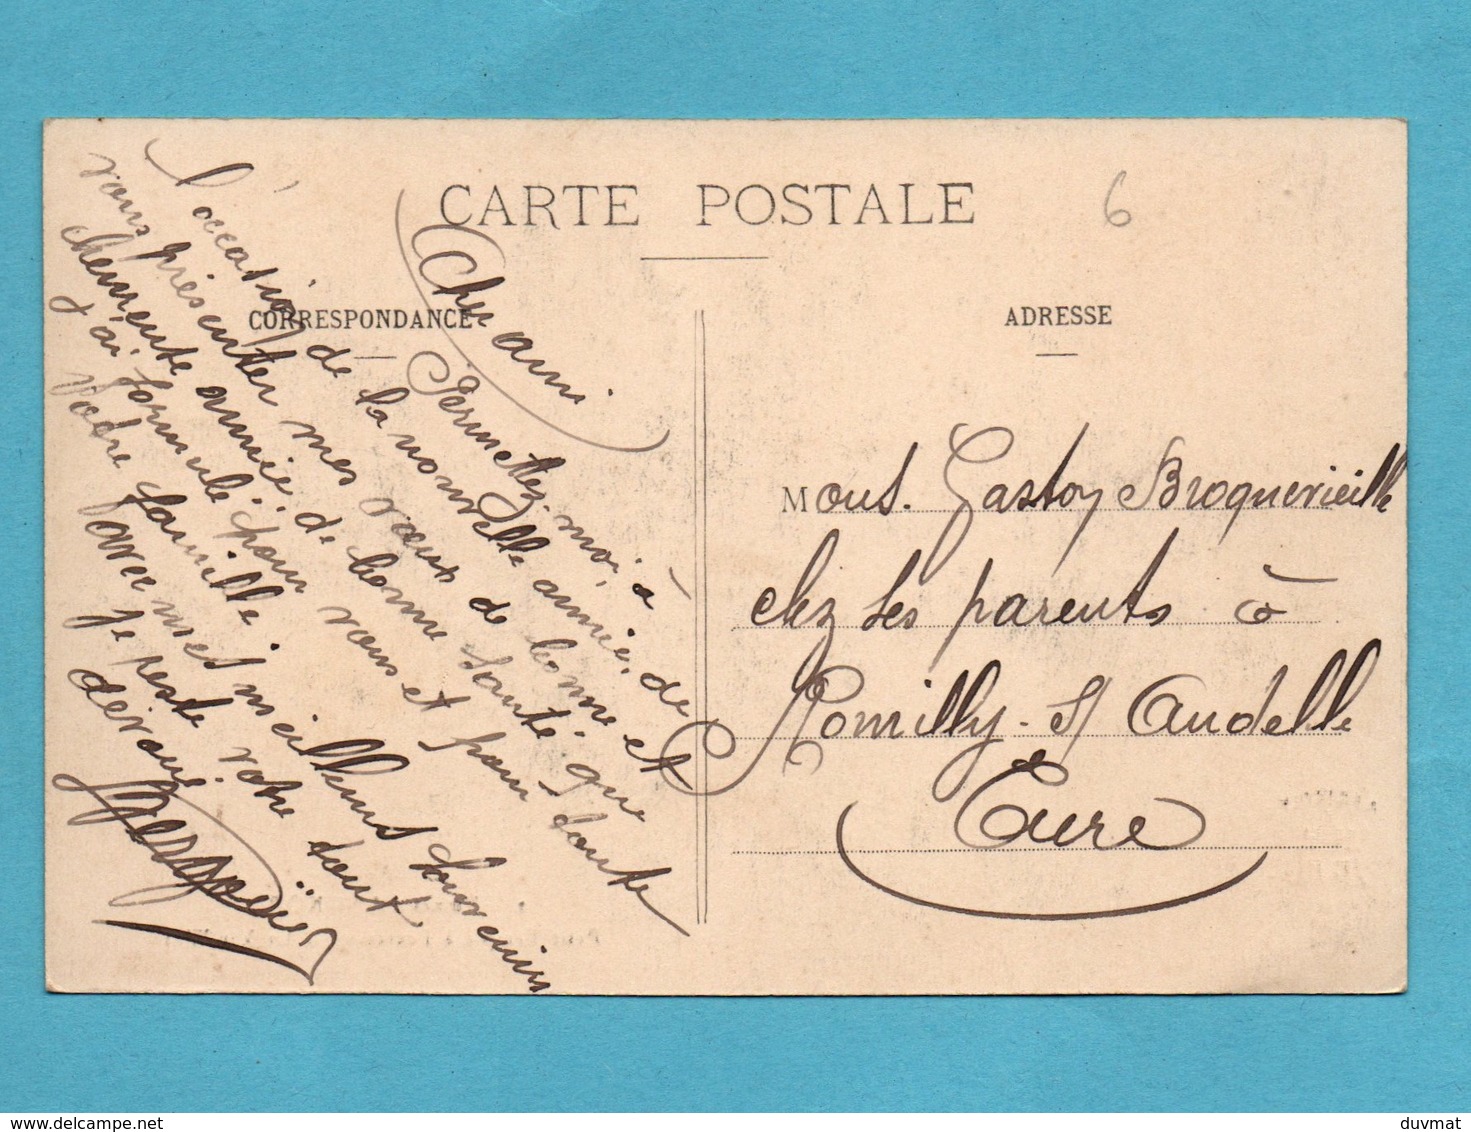 CARTE POSTALE
6
CORRESPONDANCE
ADRESSE
Cher ami
Permettez-moi, à
l'occasion de la nouvelle année, de
vous présenter mes vœux de bonne et
chemente année, de bonne santé que
j'ai formulé pour vous et pour toute
votre famille.
avec mes meilleurs souvenirs
je reste votre tout
dévoué
Mons. Gaston Broquerieille
chez ses parents à
Romilly-s/ Andelle
Eure
delcampe.net
duvmat